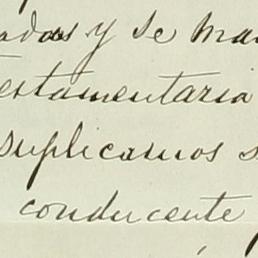 adas y se man
estamentaria
suplicamos s
conducente